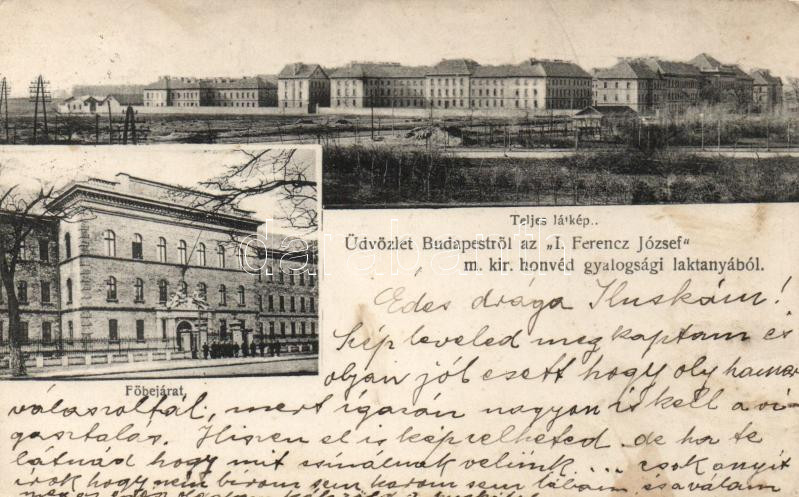 Teljes látkép..
Üdvözlet Budapestről az „I. Ferencz József“
m. kir. honvéd gyalogsági laktanyából.
darabanth
Főbejárat.
Édes drága Iluskám!
Szép leveled megkaptam és
olyan jól esett hogy oly hamar
válaszoltál, mert igazán nagyon is kell a vi-
gasztalás. Hiszen el is képzelheted de ha te
látnád hogy mit csinálnak velünk... csak annyit
írok hogy nem birom sem karom sem lábam, a vállam